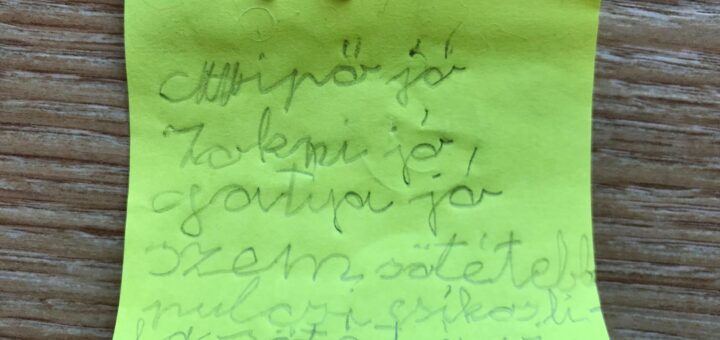 cipő jó
Zokni jó,
gatya jó
szem sötétebb
pulcsi, csíkos li-